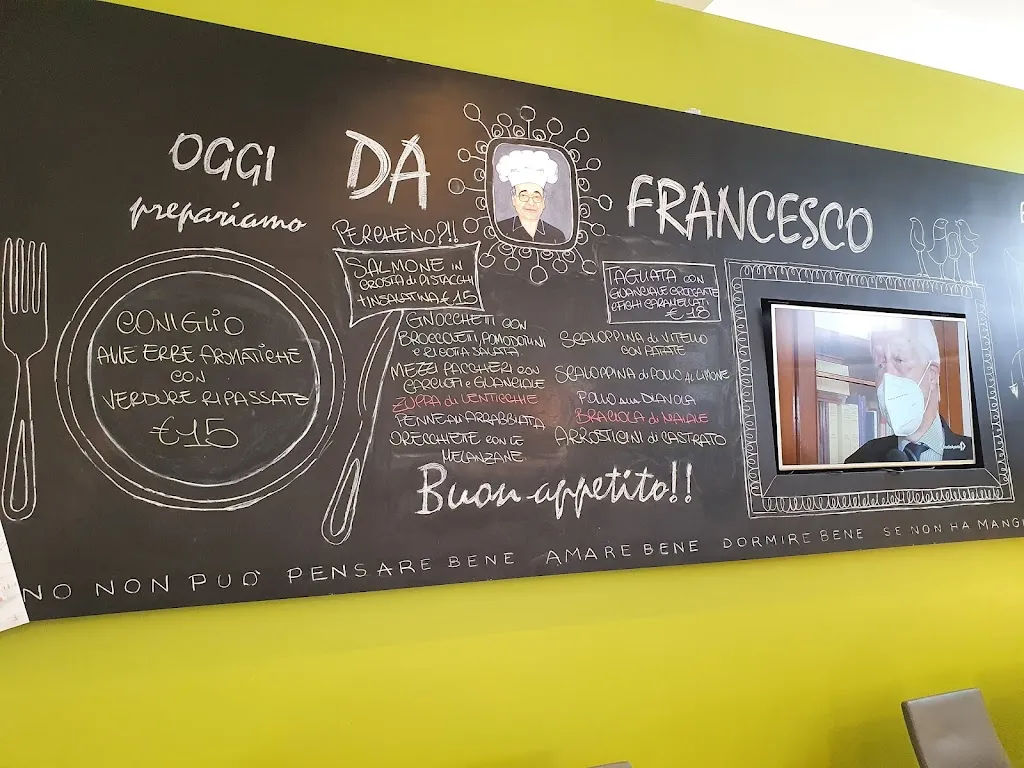 OGGI
prepariamo
DA
FRANCESCO
CONIGLIO
ALLE ERBE AROMATICHE
CON
VERDURE RIPASSATE
€15
PERCHENO?!!
SALMONE IN
CROSTA DI PISTACCHI
+INSALATINA €15
GNOCCHETTI CON
BROCCOLETI, POMODORINI
E RICOTTA SALATA
MEZZI PACCHERI CON
CARCIOFI E GUANCIALE
ZUPPA di LENTICCHIE
PENNE all'ARRABBIATA
ORECCHIETE CON LE
MELANZANE
TAGLIATA CON
GUANCIALE CROCCANTE
€ 18
SCALOPPINA di VITELLO
CON PATATE
SCALOPPINA di POLLO AL LIMONE
POLLO alla DIAVOLA
BRACIOLA di MAIALE
ARROSTICINI di CASTRATO
Buon appetito!!
NO NON PUÒ PENSARE BENE AMARE BENE DORMIRE BENE SE NON HA MANGI